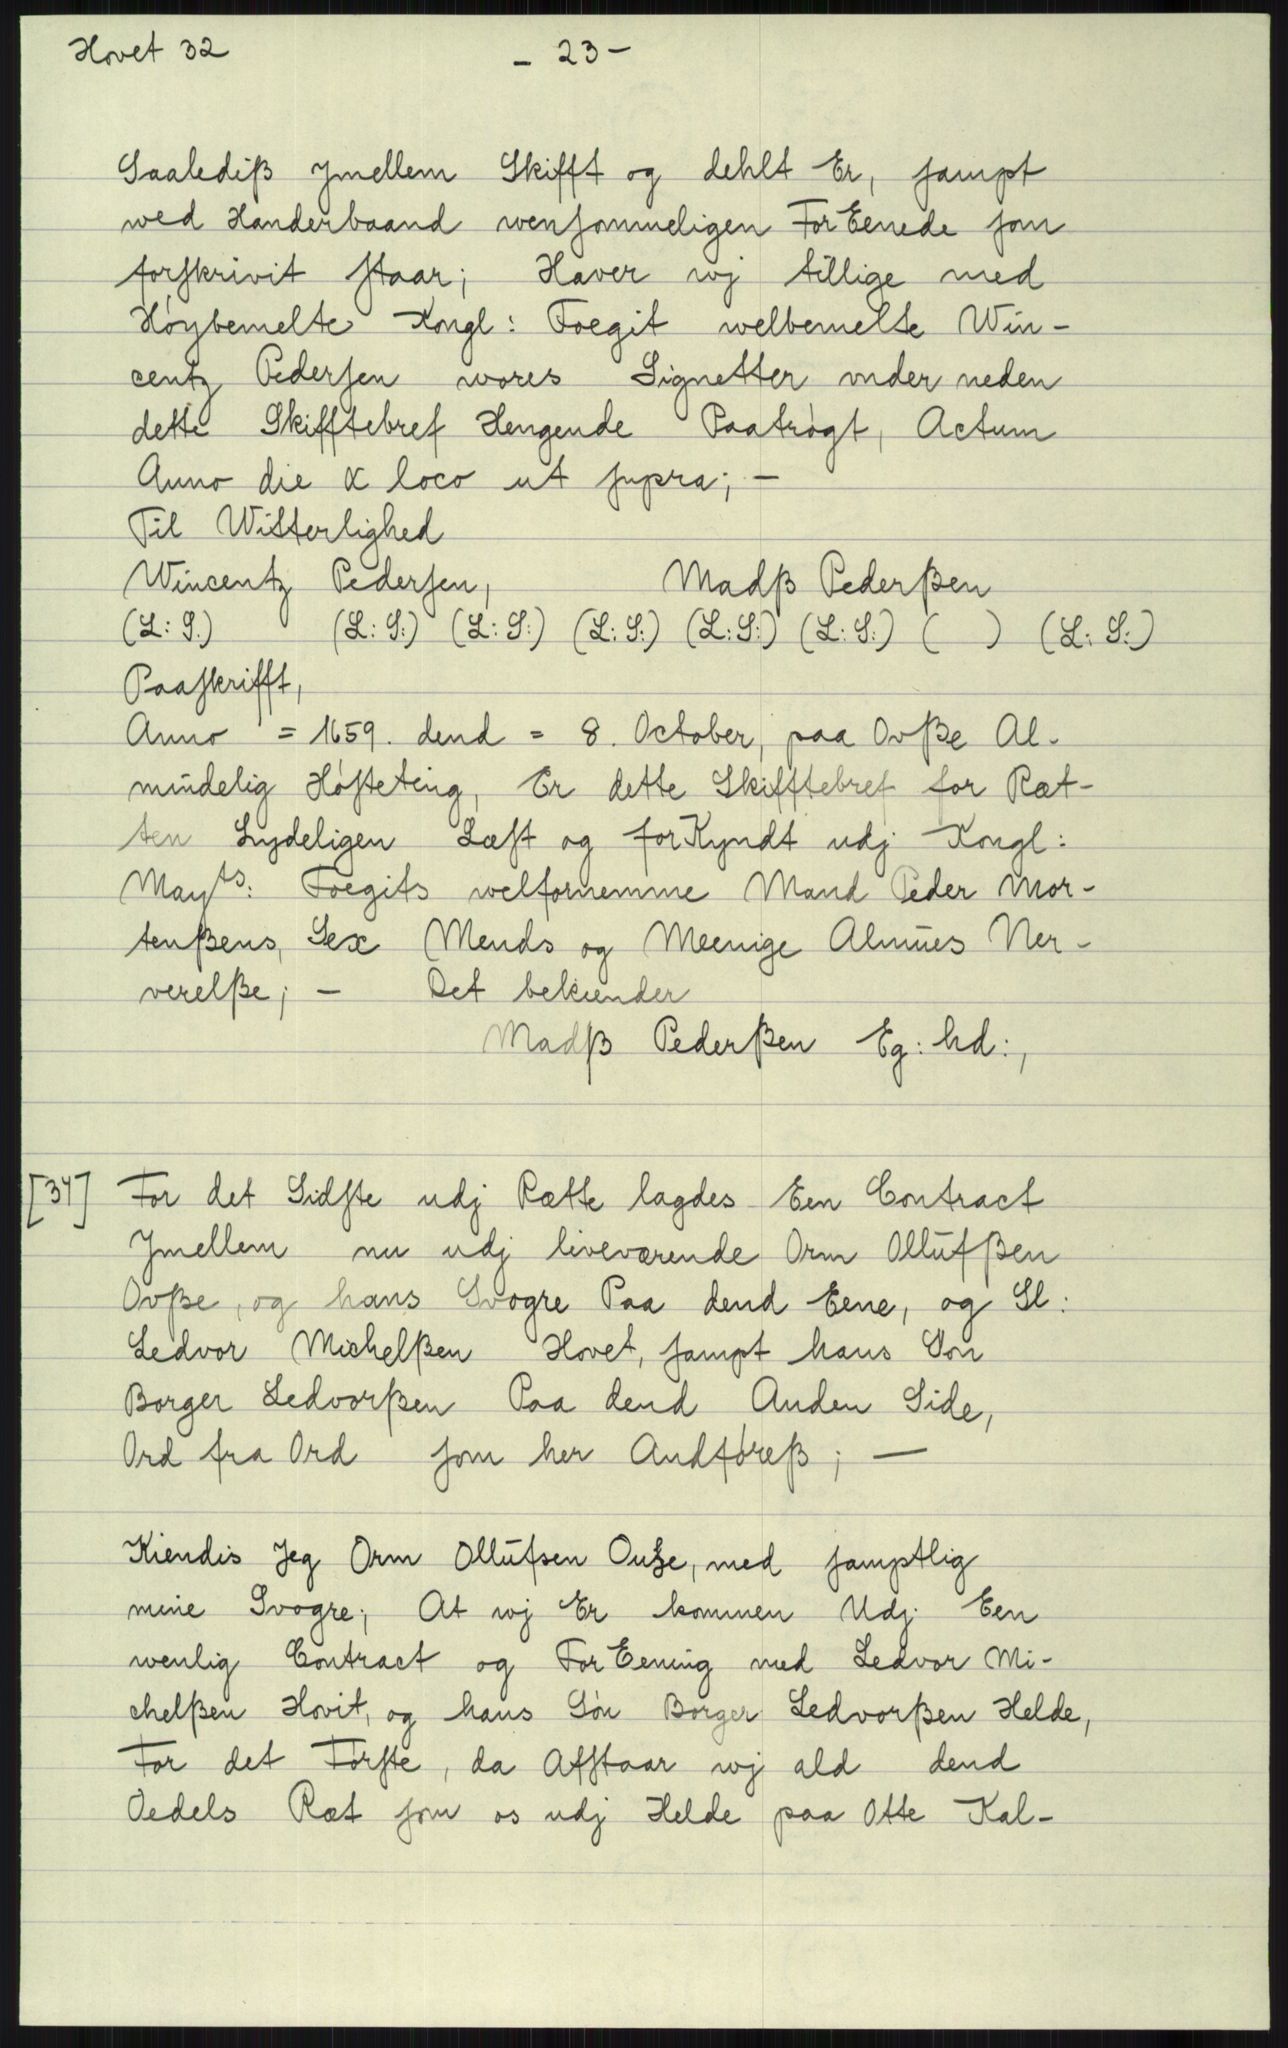 Hovet 32
- 23 -
Saalediß ymellem Skifft og dehlt Er, sampt
wed Handerbaand wensommeligen ForEenede som
forskrivit staar; Haver wj tillige med
Høybemelte Kongl: Foegit welbemelte Win-
centz Pedersen wores Signetter vnder neden
dette Skifftebref Hengende Paatrøgt, Actum
Anno die & loco ut supra; -
Til Witterlighed
Wincentz Pedersen, Madß Pederßen
(L: S.) (L: S:) (L: S:) (L: S:) (L: S:) (L: S:) ( ) (L: S:)
Paaskrifft,
Anno = 1659. dend = 8. October, paa Ovße Al-
mindelig Høsteting, Er dette Skifftebref for Ræt-
ten Lydeligen Læst og forKyndt udj Kongl:
Mayts: Foegits welfornemme Mand Peder Mor-
tenßens, Sex Mends og Meenige Almues Ner-
verelße; - Det bekiender
Madß Pederßen Eg: hd:,
[34] For det Sidste udj Rætte lagdes Een Contract
Ymellem nu udj liveværende Orm Ollufßen
Ovße, og hans Svogre Paa dend Eene, og Sl:
Ledvor Michelßen Hovet, sampt hans Søn
Borger Ledvorßen Paa dend Anden Side,
Ord fra Ord som her Andføreß; -
Kiendis Jeg Orm Ollufsen Ouße, med samptlig
mine Svogre; At wj Er kommen Udj Een
wenlig Contract og ForEening med Ledvor Mi-
chelßen Hovit, og hans Søn Borger Ledvorßen Helde,
For det Første, da Afstaar wj ald dend
Oedels Ræt som os udj Helde paa Otte Kal-